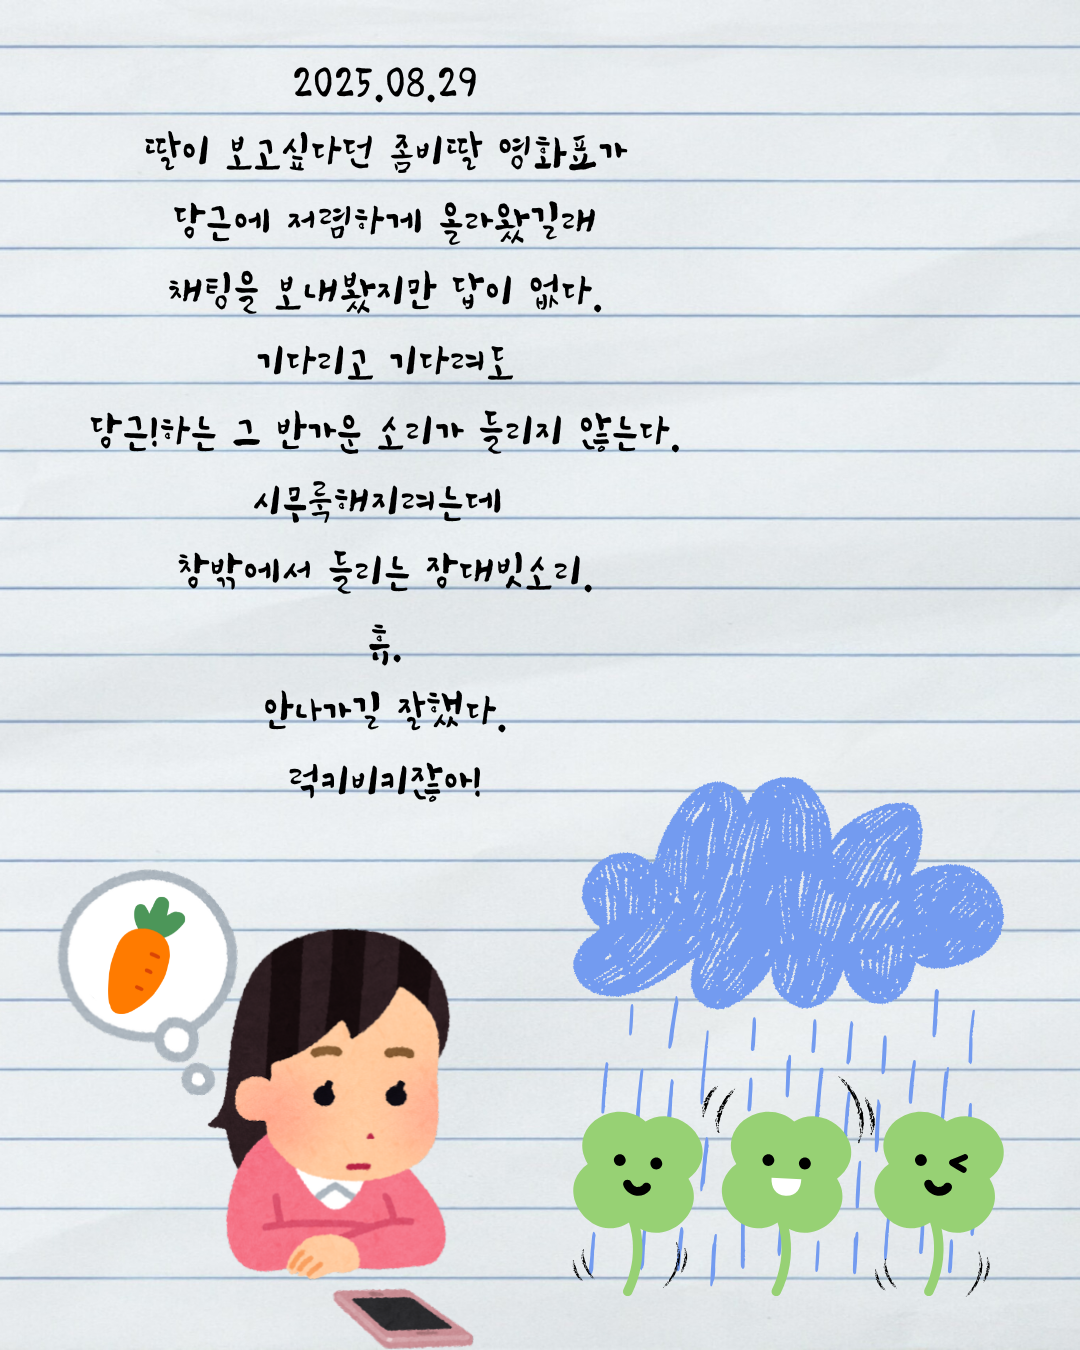 2025.08.29
딸이 보고싶다던 좀비딸 영화표가
당근에 저렴하게 올라왔길래
채팅을 보내봤지만 답이 없다.
기다리고 기다려도
당근!하는 그 반가운 소리가 들리지 않는다.
시무룩해지려는데
창밖에서 들리는 장대빗소리.
휴.
안나가길 잘했다.
럭키비키잖아!